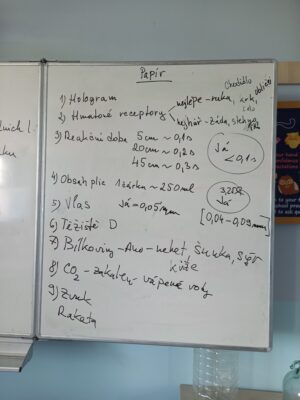 Papír
1) Hologram
Chodidlo
obličej
2) Hmatové receptory
nejlépe - ruka, krk,
nejhůř - záda, stehno
3) Reakční doba 5cm ~ 0,1s
20cm ~ 0,2s
45cm ~ 0,3s
Já
< 0,1s
4) Obsah plic 1 čárka ~ 250ml
Já
5) Vlas Já - 0,05mm
[0,04 - 0,09mm]
6) Těžiště D
7) Bílkoviny - Ano - nehet šunka, sýr
kůže
8) CO2 - zakalení - vápené vody
9) Zvuk
Raketa